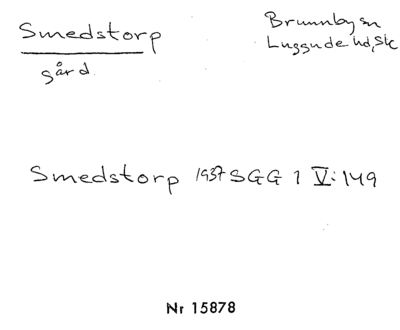 Smedstorp
Brunnby sn
Luggude hd, Sk
gård
Smedstorp 1937 SGG 1 V: 149
Nr 15878